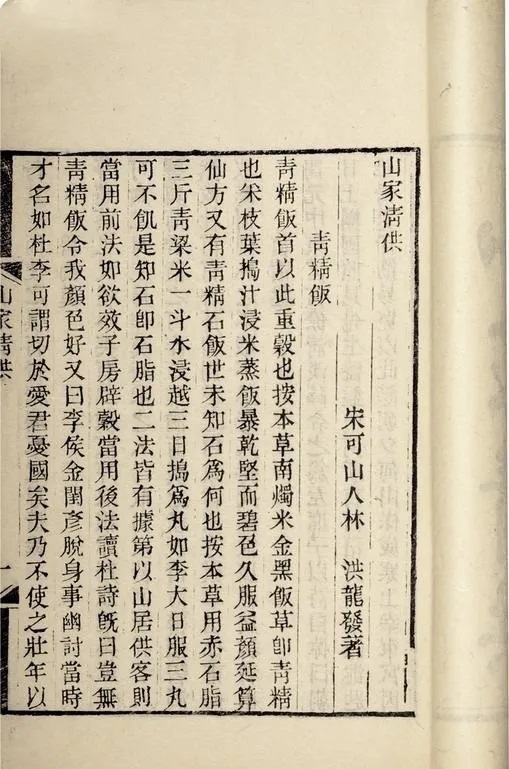 山家清供
宋可山人林 洪龍發著
青精飯
青精飯首以此重穀也按本草南燭米金黑飯草卽青精
也采枝葉搗汁浸米蒸飯暴乾堅而碧色久服益顏延算
仙方又有青精石飯世未知石爲何也按本草用赤石脂
三斤青粱米一斗水浸越三日搗爲丸如李大日服三丸
可不飢是知石卽石脂也二法皆有據第以山居供客則
當用前法如欲效子房辟穀當用後法讀杜詩旣曰豈無
青精飯令我顏色好又曰李侯金閨彥脫身事幽討當時
才名如杜李可謂切於愛君憂國矣夫乃不使之壯年以
山家清供
一